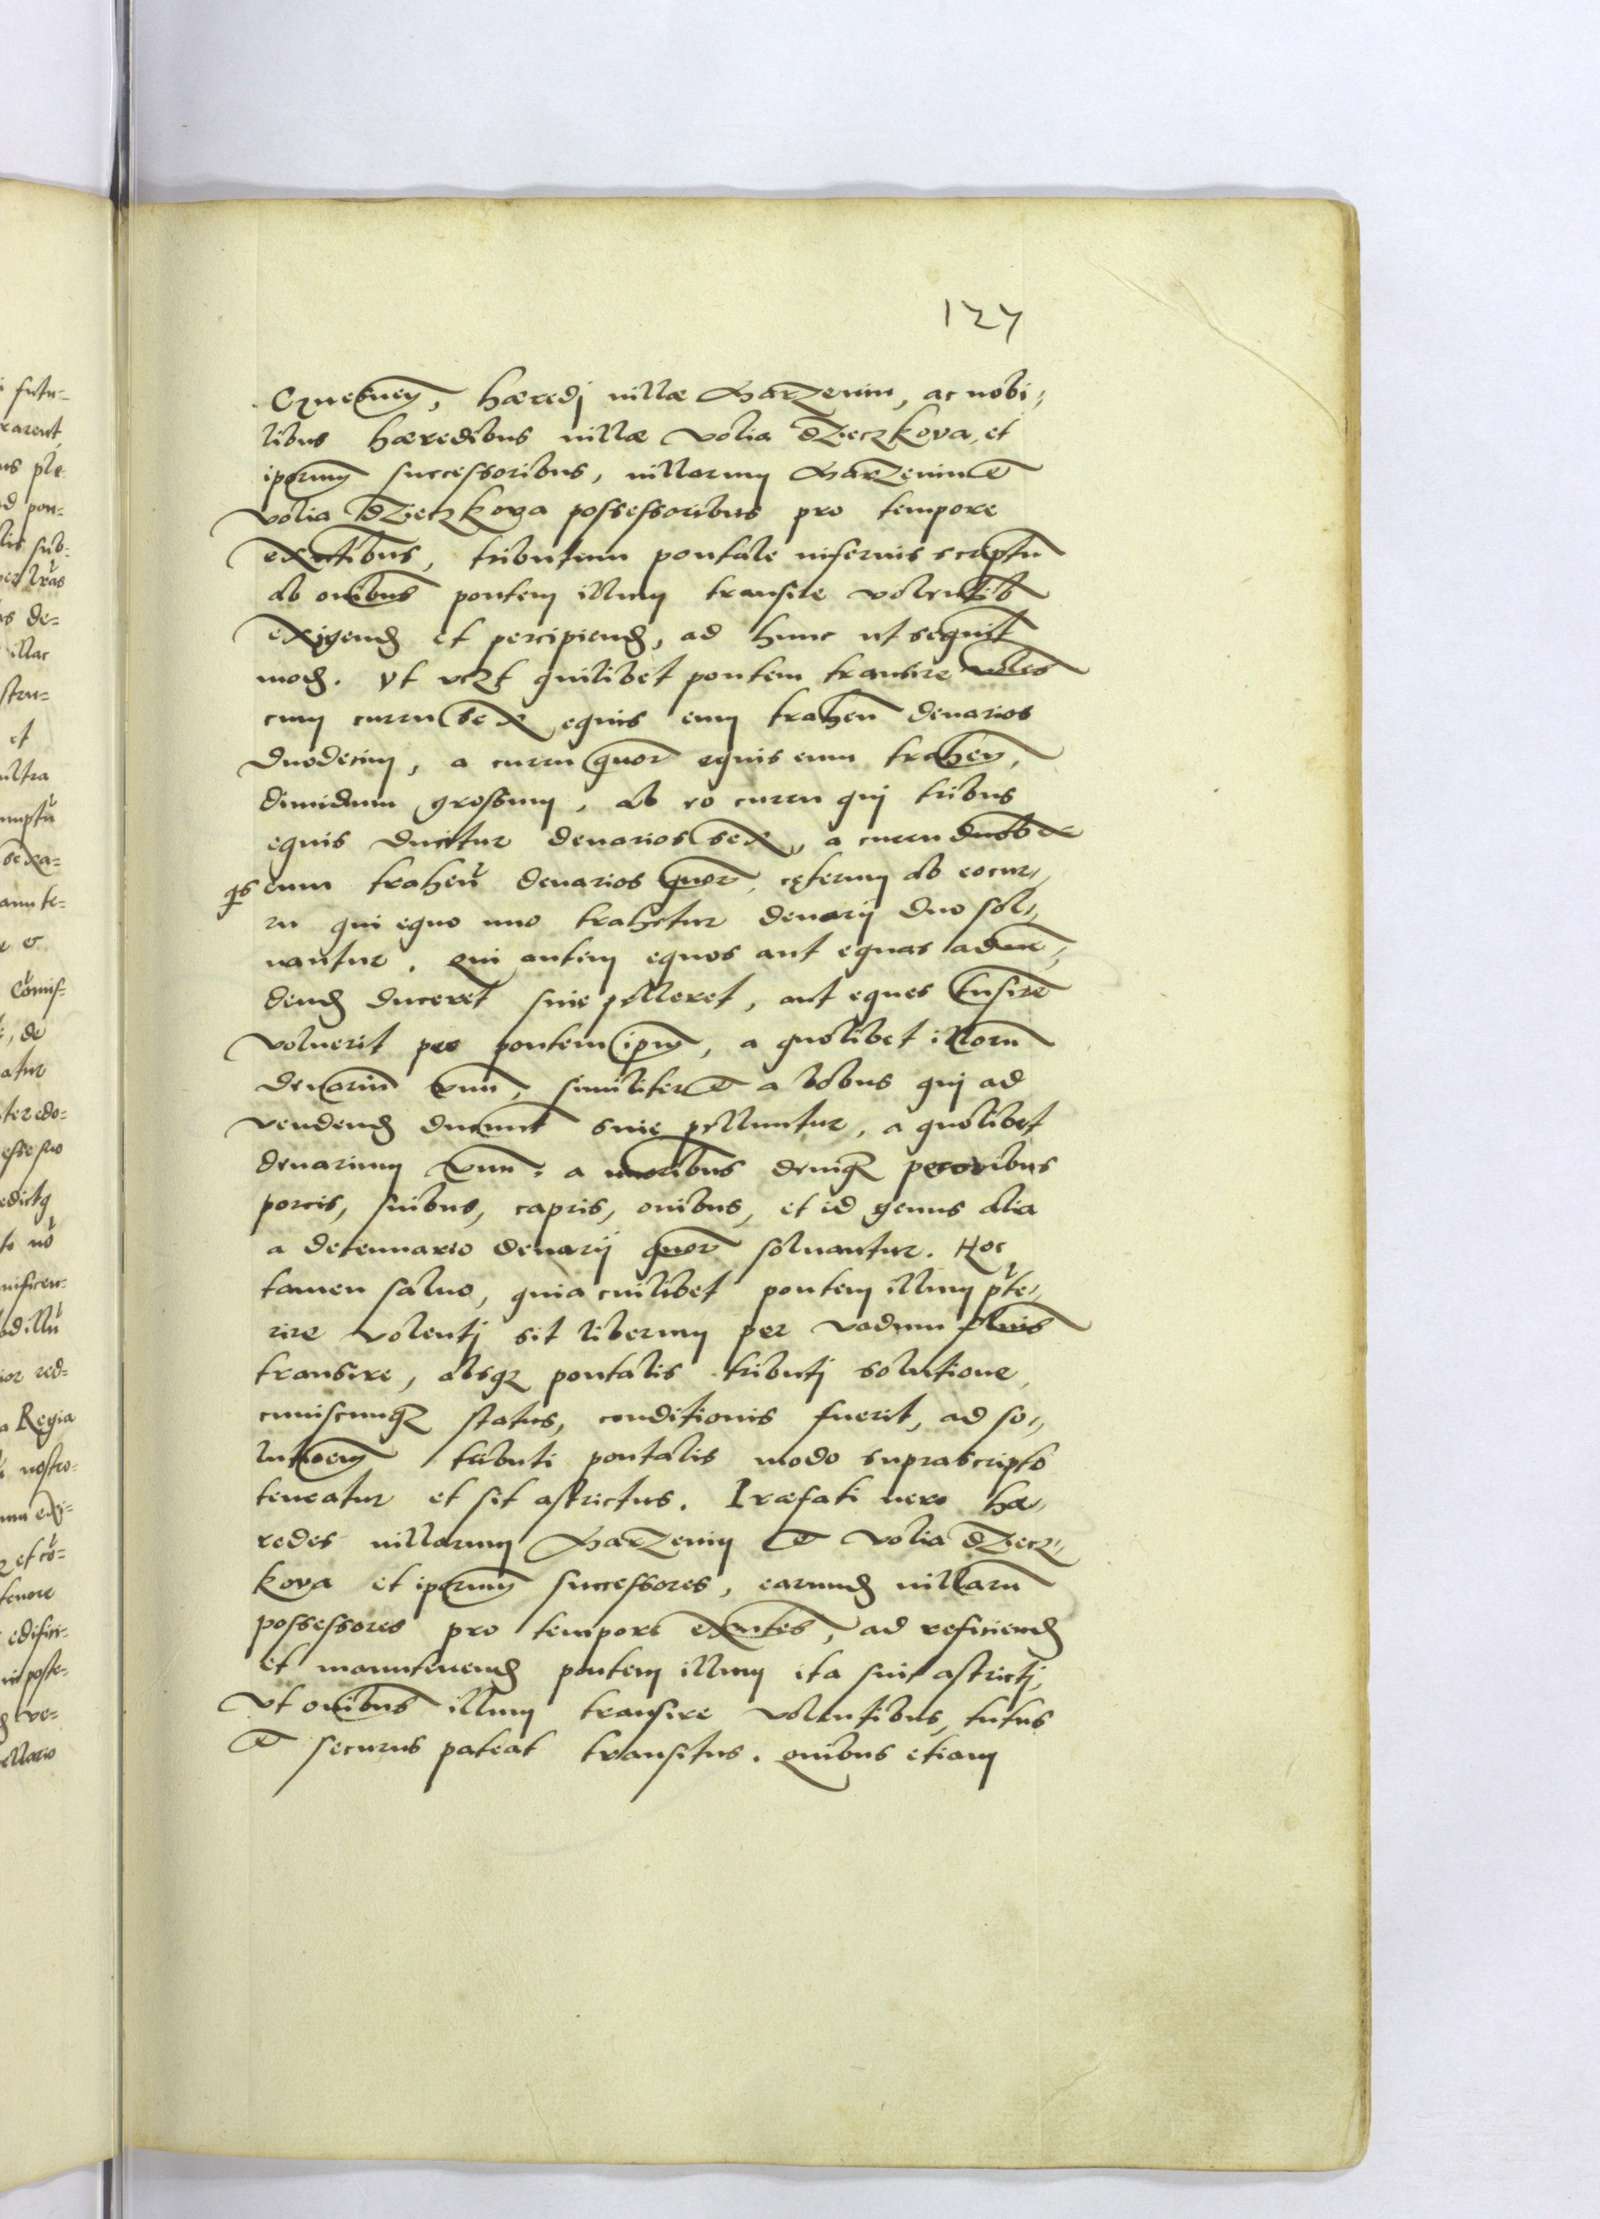 127
hæredj uillæ Marzenin, ac nobi,
libus hæredibus uillæ volia dZieczkova, et
iporum successoribus, uillarum Marzenin et
volia dZieczkova possessoribus pro tempore
exntibus, tributum pontale inferius scriptu
ab onibus pontem illum transire volentib
exigend et percipiend, ad hunc ut sequit
mod. Vt vczt quilibet pontem transire voles
cum curru sex equis eum trahen denarios
duodecim, a curru quor equis eum trahen,
dimidium grossum, ab eo curru qui tribus
equis ducitur denarios sex, a curru duob e
qs eum trahen denarios quor, cęterum ab eo cur,,
ru qui equo uno trahetur denarij duo sol,,
uantur. Qui autem equos aut equas ad uen,,
dend duceret siue pelleret, aut eques tnsire
voluerit per pontem ipm, a quolibet illoru
denariu vnu, similiter et a bobus qui ad
vendend ducunt siue pelluntur, a quolibet
denarium vnu, a denique pecoribus
porcis, suibus, capris, ouibus, et id genus alia
a decennario denarij quor soluantur. Hoc
tamen saluo, quia cuilibet pontem illum pte,,
rire volentj sit liberum per vadum fluuis
transire, absque pontalis tributj solutione,
cuiuscunque status, conditionis fuerit, ad so,,
lutioem tributi pontalis modo suprascripto
teneatur et sit astrictus. Præfati uero hæ,,
redes uillarum Marzenin et volia dZiecz,,
kova et iporum successores, earund uillaru
possessores pro tempore exntes, ad reficiend
et manutenend pontem illum ita sint astrictj,
Vt onibus illum transire volentibus, tutus
et securus pateat transitus. Quibus etiam